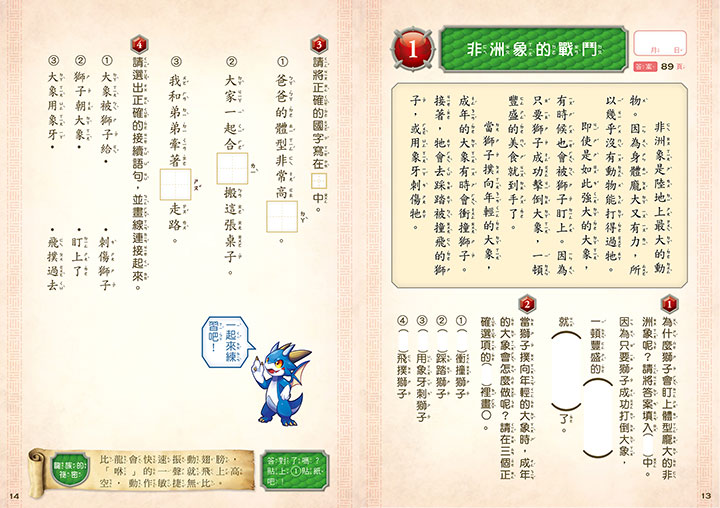 1
非洲象的戰鬥
月 日
答案 89頁
非洲象是陸地上最大的動
物。因為身體龐大又有力，所
以幾乎沒有動物能打得過牠。
即使是如此強大的大象，
有時候也會被獅子盯上。因為
只要獅子成功擊倒大象，一頓
豐盛的美食就到手了。
當獅子撲向年輕的大象，
成年的大象有時會衝撞獅子。
接著，牠會去踩踏被撞飛的獅
子，或用象牙刺傷牠。
1
為什麼獅子會盯上體型龐大的非
洲象呢？請將答案填入（ ）中。
因為只要獅子成功打倒大象，
一頓豐盛的（ ）
就（ ）了。
2
當獅子撲向年輕的大象時，成年
的大象會怎麼做呢？請在三個正
確選項的（ ）裡畫○。
①（ ）衝撞獅子
②（ ）踩踏獅子
③（ ）用象牙刺獅子
④（ ）飛撲獅子
13
3
請將正確的國字寫在□中。
①爸爸的體型非常高□。
ㄉㄚˋ
②大家一起合□搬這張桌子。
ㄌㄧˋ
③我和弟弟牽著□走路。
ㄕㄡˇ
4
請選出正確的接續語句，並畫線連接起來。
①大象被獅子給・
②獅子朝大象・
③大象用象牙・
・刺傷獅子
・盯上了
・飛撲過去
一起來練
習吧！
龍族的
祕密
比龍會快速振動翅膀，
「咻」的一聲就飛上高
空，動作敏捷無比。
答對了嗎？
貼上①貼紙
吧！
14